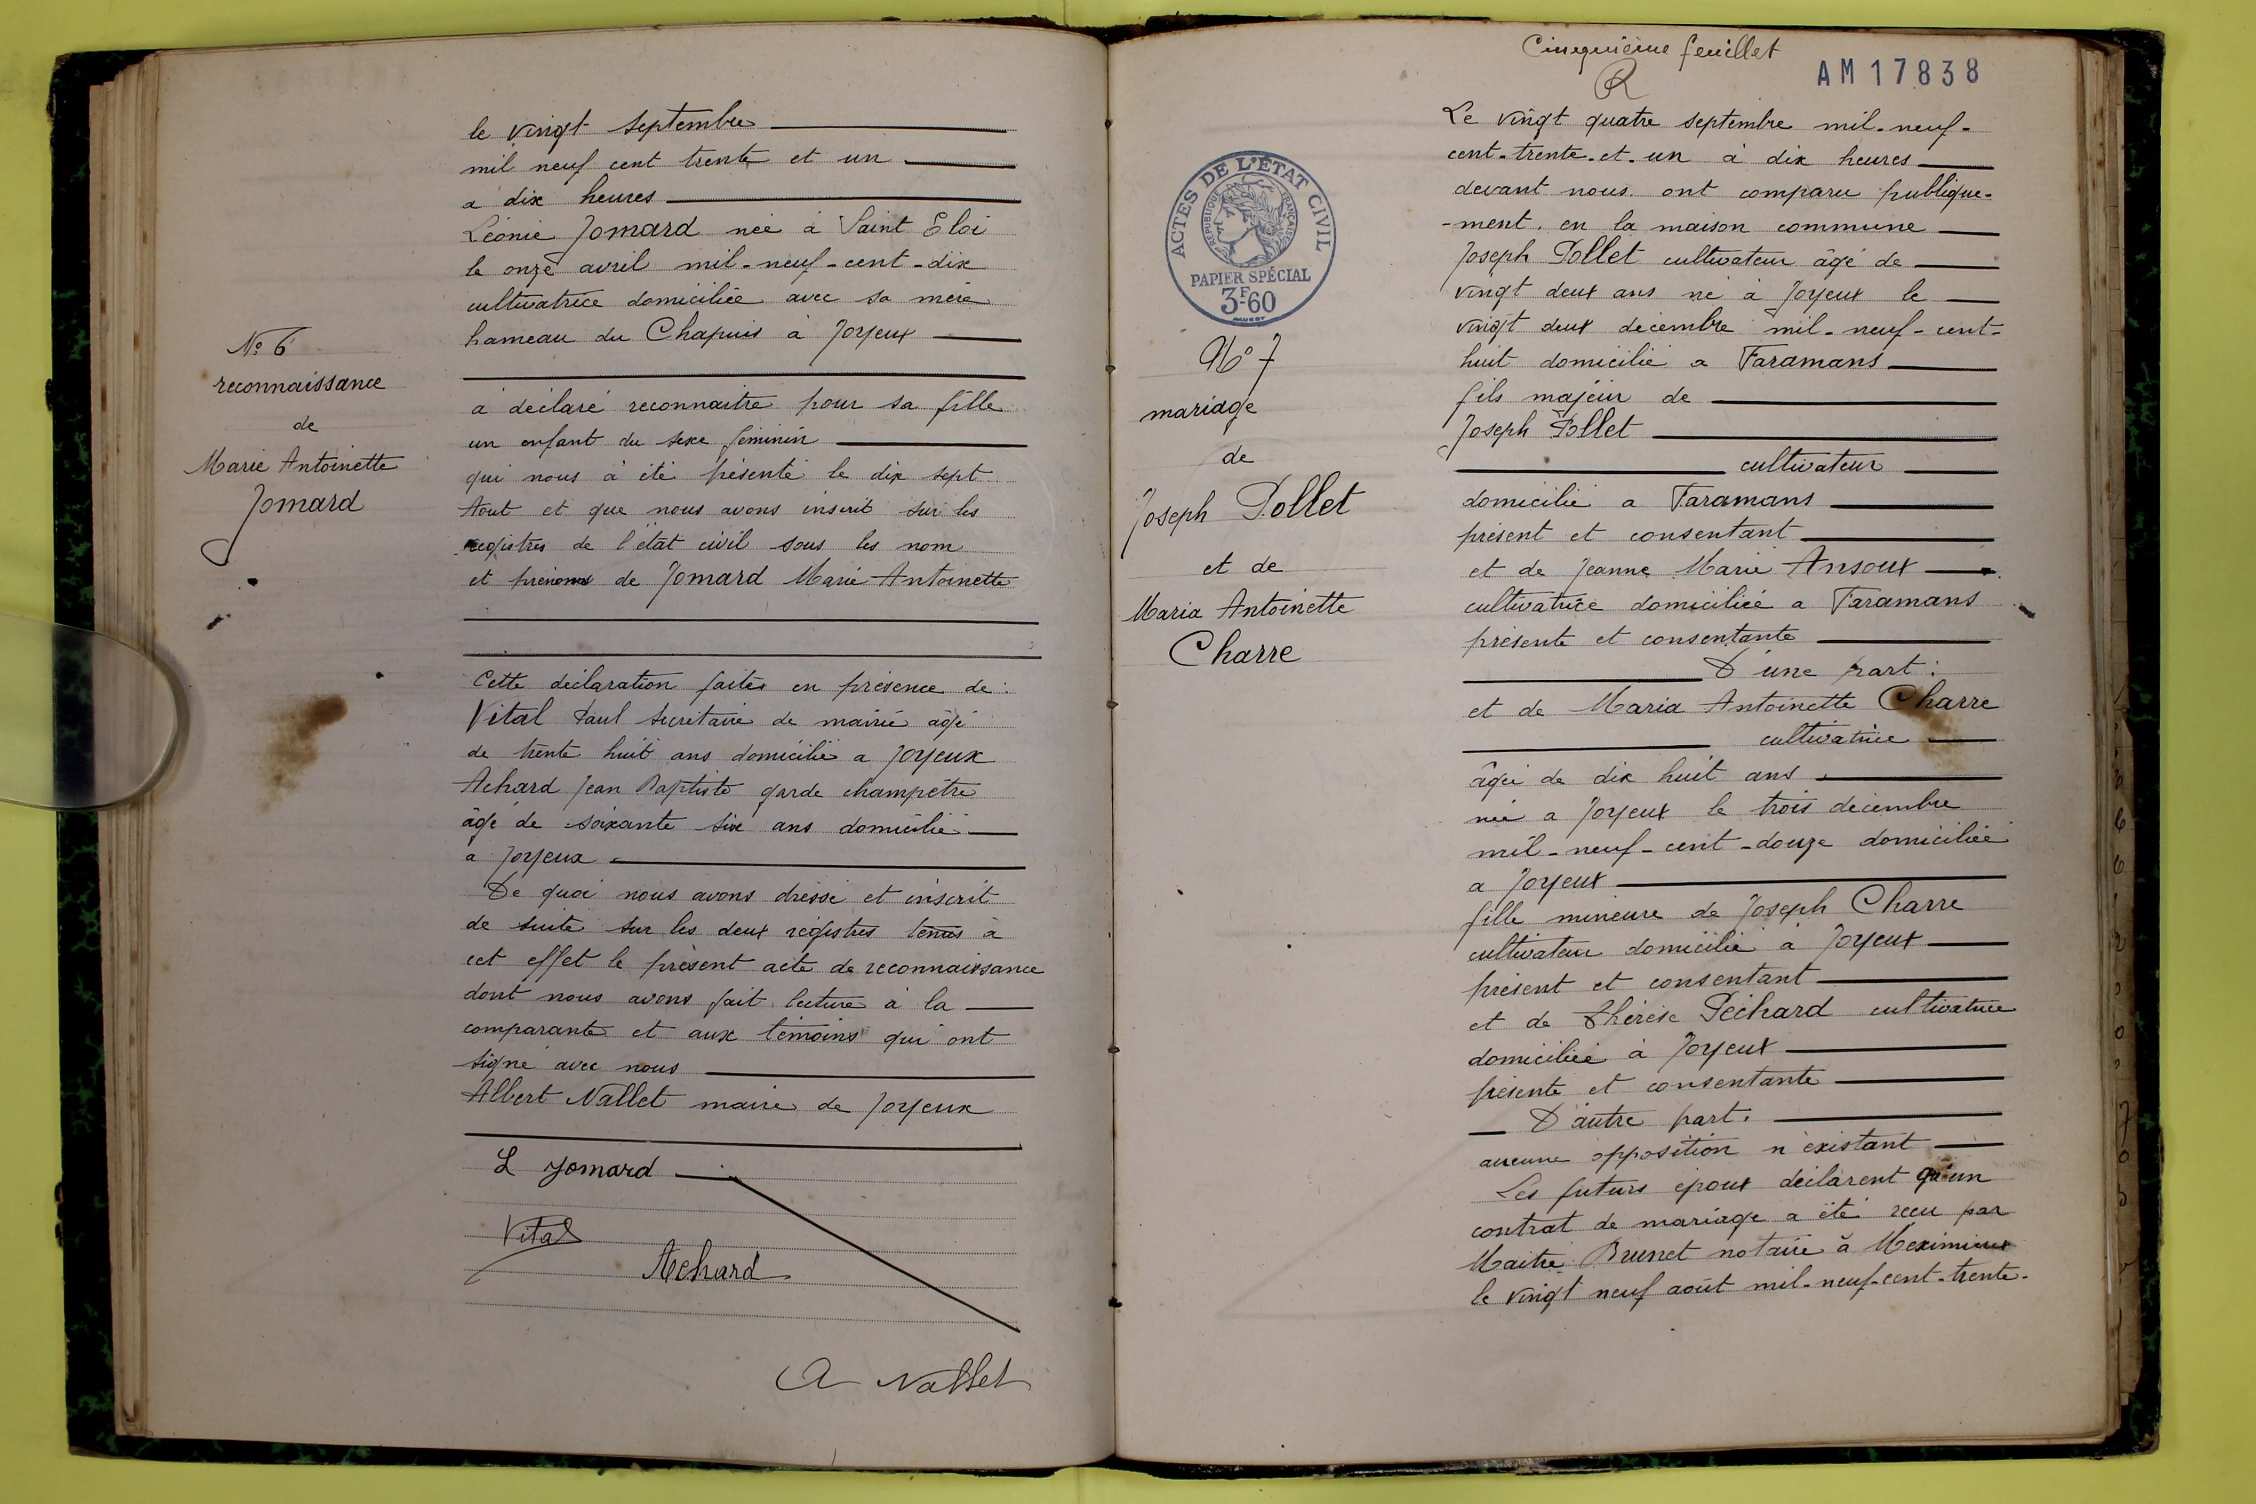 le vingt septembre
mil neuf cent trente et un
a dix heures
Léonie Jomard née à Saint Eloi
le onze avril mil-neuf-cent-dix
cultivatrice domiciliée avec sa mère
hameau du Chapuis à Joyeux
N° 6
reconnaissance
de
Marie Antoinette
Jomard
a déclaré reconnaitre pour sa fille
un enfant du sexe féminin
qui nous à été présenté le dix sept
Aout et que nous avons inscrit sur les
registres de l'état civil sous les nom
et prénoms de Jomard Marie Antoinette
Cette déclaration faites en présence de :
Vital Paul secrétaire de mairie âgé
de trente huit ans domicilié a Joyeux
Achard Jean Baptiste garde champetre
âgé de soixante six ans domicilié
a Joyeux
De quoi nous avons dressé et inscrit
de suite sur les deux régistres tenus à
cet effet le présent acte de reconnaissance
dont nous avons fait lecture à la
comparante et aux témoins qui ont
signé avec nous
Albert Nallet maire de Joyeux
L Jomard
Vital
Achard
A Nallet
Cinquième feuillet
R
AM17838
ACTES DE L'ÉTAT CIVIL
RÉPUBLIQUE FRANÇAISE
PAPIER SPÉCIAL
3F60
N° 7
mariage
de
Joseph Pollet
et de
Maria Antoinette
Charre
Le vingt quatre septembre mil-neuf-
cent-trente-et-un à dix heures
devant nous ont comparu publique-
-ment. en la maison commune
Joseph Pollet cultivateur âgé de
vingt deux ans né à Joyeux le
vingt deux décembre mil-neuf-cent-
huit domicilié a Faramans
fils majeur de
Joseph Pollet
cultivateur
domicilié a Faramans
présent et consentant
et de Jeanne Marie Ansoux
cultivatrice domiciliée a Faramans
présente et consentante
D'une part :
et de Maria Antoinette Charre
cultivatrice
âgée de dix huit ans
née a Joyeux le trois décembre
mil-neuf-cent-douze domiciliée
a Joyeux
fille mineure de Joseph Charre
cultivateur domicilié à Joyeux
présent et consentant
et de Thérèse Péchard cultivatrice
domiciliée à Joyeux
présente et consentante
D'autre part.
aucune opposition n'existant
Les futurs époux déclarent qu'un
contrat de mariage a été reçu par
Maitre Brunet notaire à Meximieux
le vingt neuf août mil-neuf-cent-trente-